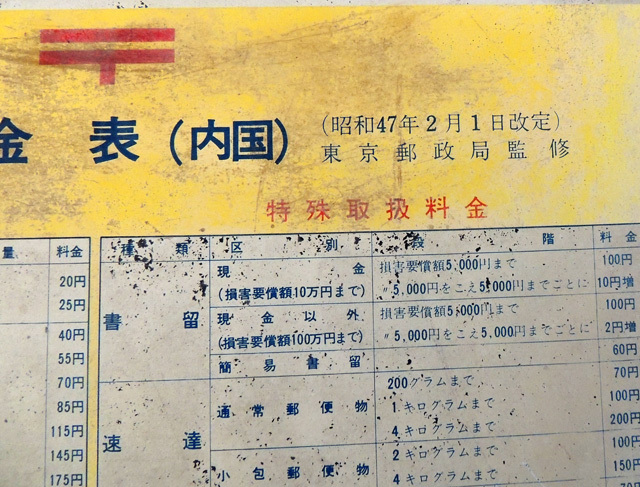 金 表(内国)
(昭和47年2月1日改定)
東京郵政局監修
特殊取扱料金
量 料金
20円
25円
40円
55円
70円
85円
115円
145円
175円
種類 区別 段階 料金
書留 現金 損害要償額5,000円まで 100円
(損害要償額10万円まで) 〃5,000円をこえ5,000円までごとに 10円増
現金以外 損害要償額5,000円まで 100円
(損害要償額100万円まで) 〃5,000円をこえ5,000円までごとに 2円増
簡易書留 60円
速達 通常郵便物 200グラムまで 70円
1キログラムまで 100円
4キログラムまで 200円
小包郵便物 2キログラムまで 100円
4キログラムまで 150円